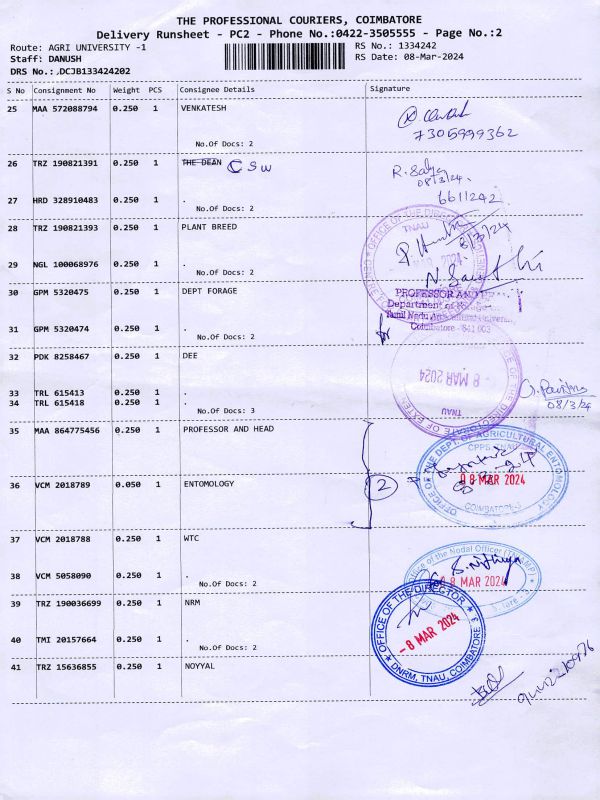 THE PROFESSIONAL COURIERS, COIMBATORE
Delivery Runsheet - PC2 - Phone No.:0422-3505555 - Page No.:2
Route: AGRI UNIVERSITY -1
RS No.: 1334242
Staff: DANUSH
RS Date: 08-Mar-2024
DRS No.: DCJB133424202
S No Consignment No Weight PCS Consignee Details Signature
25 MAA 572088794 0.250 1 VENKATESH
7305999362
No.Of Docs: 2
26 TRZ 190821391 0.250 1 THE DEAN CSW
08/3/24.
27 HRD 328910483 0.250 1 .
6611242
No.Of Docs: 2
28 TRZ 190821393 0.250 1 PLANT BREED
TNAU
8/3/24
29 NGL 100068976 0.250 1 .
No.Of Docs: 2
30 GPM 5320475 0.250 1 DEPT FORAGE
PROFESSOR AND
Department of
Tamil Nadu Agricultural University
Coimbatore - 641 003
for
31 GPM 5320474 0.250 1 .
No.Of Docs: 2
32 PDK 8258467 0.250 1 DEE
8 MAR 2024
TNAU
33 TRL 615413 0.250 1 .
34 TRL 615418 0.250 1 .
08/3/24
No.Of Docs: 3
35 MAA 864775456 0.250 1 PROFESSOR AND HEAD
OFFICE OF THE DEPT. OF AGRICULTURAL ENTOMOLOGY
CPPS, TNAU
36 VCM 2018789 0.050 1 ENTOMOLOGY
2
08 MAR 2024
COIMBATORE-3
37 VCM 2018788 0.250 1 WTC
Office of the Nodal Officer
S. Nithya
38 VCM 5058090 0.250 1 .
8 MAR 2024
No.Of Docs: 2
39 TRZ 190036699 0.250 1 NRM
OFFICE OF THE DIRECTOR
- 8 MAR 2024
DNRM, TNAU, COIMBATORE - 3
40 TMI 20157664 0.250 1 .
No.Of Docs: 2
41 TRZ 15636855 0.250 1 NOYYAL